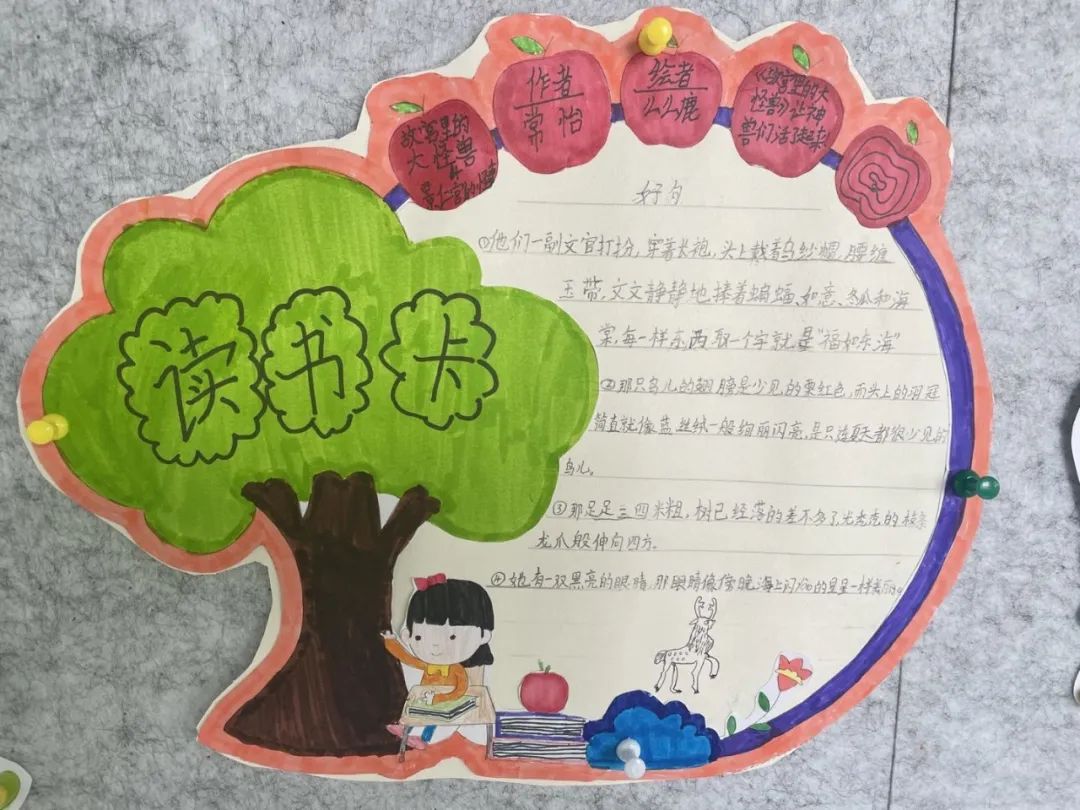 读书卡
故宫里的
大怪兽
4
景仁宫的怪事
作者
常怡
绘者
么么鹿
《故宫里的大
怪兽》让神
兽们活了起来
好句
①他们一副文官打扮,穿着长袍,头上戴着乌纱帽,腰缠
玉带,文文静静地捧着蝙蝠、如意、冬瓜和海
棠,每一样东西取一个字就是“福如东海”
②那只鸟儿的翅膀是少见的栗红色,而头上的羽冠
简直就像蓝丝绒一般绚丽闪亮,是只连夏天都很少见的
鸟儿。
③那足足三四米粗,树已经落的差不多了,光秃秃的枝条
龙爪般伸向四方。
④她有一双黑亮的眼睛,那眼睛像傍晚海上闪烁的星星一样美丽。